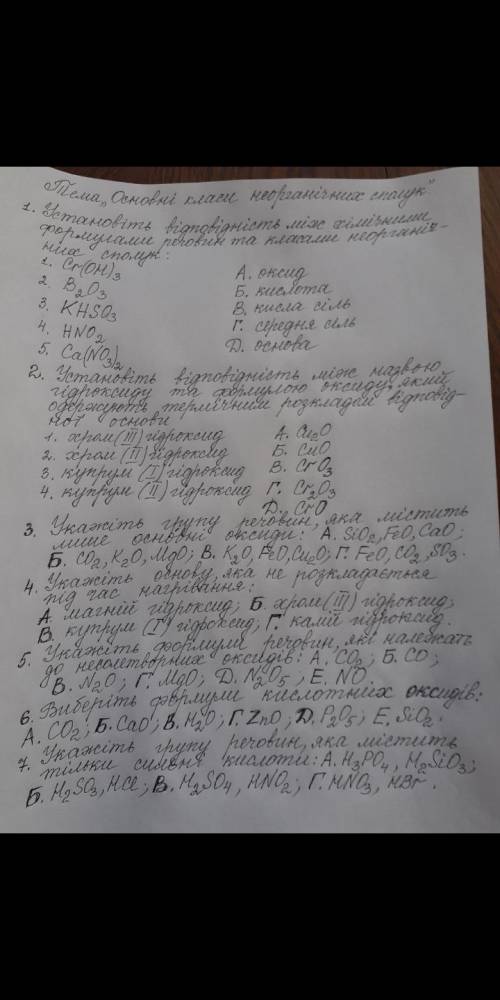 Тема „Основні класи неорганічних сполук"
1. Установіть відповідність між хімічними
формулами речовин та класами неорганіч-
них сполук:
1. Cr(OH)3 А. оксид
2. B2O3 Б. кислота
3. KHSO3 В. кисла сіль
4. HNO2 Г. середня сіль
5. Ca(NO3)2 Д. основа
2. Установіть відповідність між назвою
гідроксиду та формулою оксиду, який
одержують термічним розкладом відповід-
ної основи
1. хром (III) гідроксид А. Cu2O
2. хром (II) гідроксид Б. CuO
3. купрум (I) гідроксид В. CrO3
4. купрум (II) гідроксид Г. Cr2O3
Д. CrO
3. Укажіть групу речовин, яка містить
лише основні оксиди: А. SiO2, FeO, CaO;
Б. CO2, K2O, MgO; В. K2O, FeO, Cu2O; Г. FeO, CO2, SO3.
4. Укажіть основу, яка не розкладається
під час нагрівання:
А. магній гідроксид; Б. хром (III) гідроксид;
В. купрум (I) гідроксид; Г. калій гідроксид.
5. Укажіть формули речовин, які належать
до несолетворних оксидів: А. CO2; Б. CO;
В. N2O; Г. MgO; Д. N2O5; Е. NO.
6. Виберіть формули кислотних оксидів:
А. CO2; Б. CaO; В. H2O; Г. ZnO; Д. P2O5; Е. SiO2.
7. Укажіть групу речовин, яка містить
тільки сильні кислоти: А. H3PO4, H2SiO3;
Б. H2SO3, HCl; В. H2SO4, HNO2; Г. HNO3, HBr.